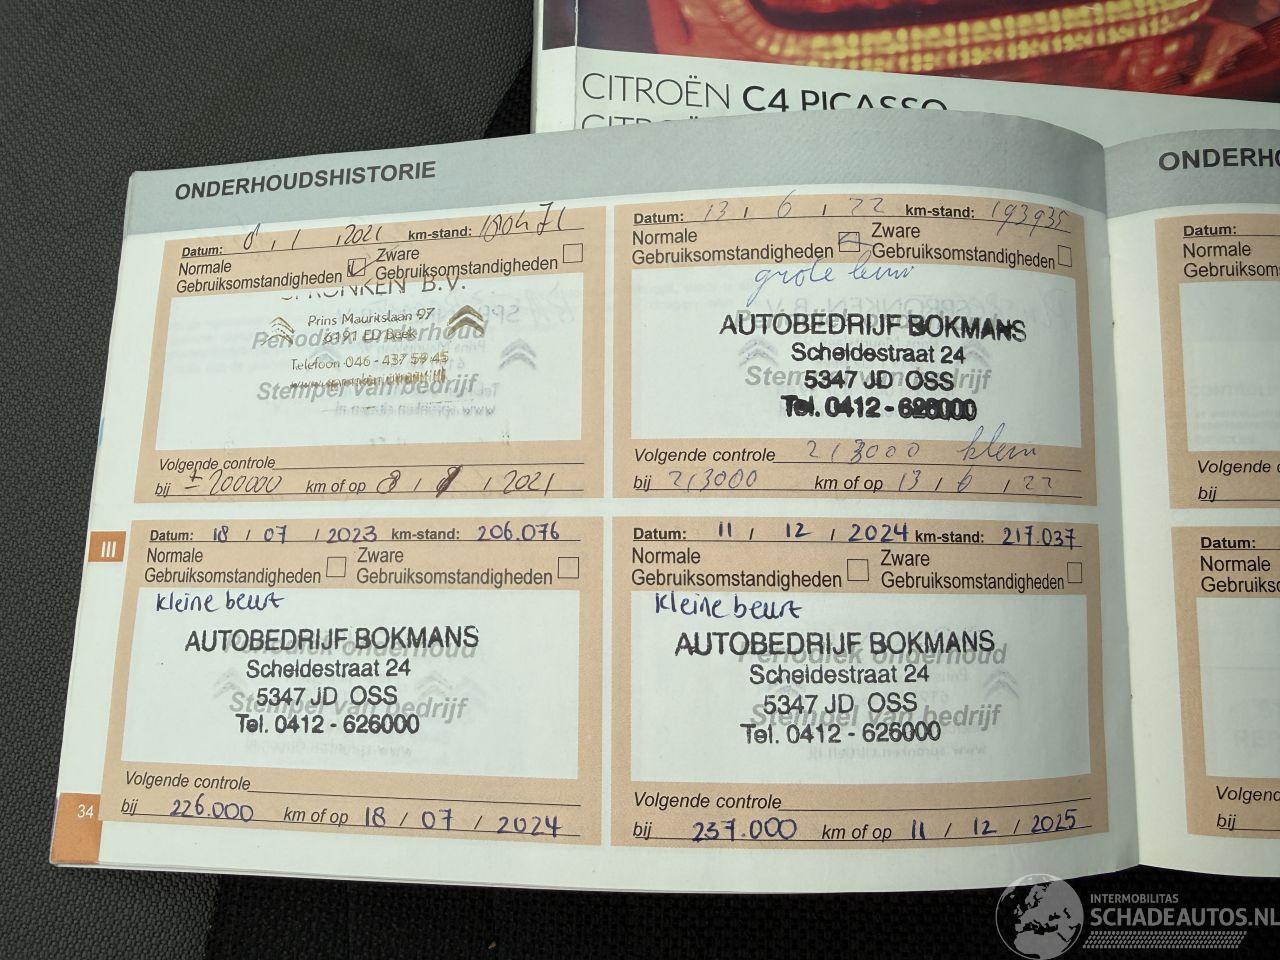 CITROËN C4 PICASSO
ONDERHOUDSHISTORIE
ONDERHO
Datum: 8 / 1 / 2021 km-stand: 180471
Normale Gebruiksomstandigheden
Zware Gebruiksomstandigheden
SPRONKEN B.V.
Prins Mauritslaan 97
6191 ED Beek
Periodiek onderhoud
Telefoon 046 - 437 59 45
Stempel van bedrijf
Volgende controle
bij ± 200000 km of op 8 / 1 / 2021
Datum: 13 / 6 / 22 km-stand: 193935
Normale Gebruiksomstandigheden
Zware Gebruiksomstandigheden
grote beurt
AUTOBEDRIJF BOKMANS
Scheldestraat 24
Stempel van bedrijf
5347 JD OSS
Tel. 0412 - 626000
Volgende controle 213000 klein
bij 213000 km of op 13 / 6 / 22
III
Datum: 18 / 07 / 2023 km-stand: 206.076
Normale Gebruiksomstandigheden
Zware Gebruiksomstandigheden
kleine beurt
AUTOBEDRIJF BOKMANS
Periodiek onderhoud
Scheldestraat 24
5347 JD OSS
Stempel van bedrijf
Tel. 0412 - 626000
Volgende controle
bij 226.000 km of op 18 / 07 / 2024
Datum: 11 / 12 / 2024 km-stand: 217.037
Normale Gebruiksomstandigheden
Zware Gebruiksomstandigheden
kleine beurt
AUTOBEDRIJF BOKMANS
Periodiek onderhoud
Scheldestraat 24
5347 JD OSS
Stempel van bedrijf
Tel. 0412 - 626000
Volgende controle
bij 237.000 km of op 11 / 12 / 2025
34
Datum:
Normale
Gebruiks
Volgende c
bij
Datum:
Normale
Gebruiks
Volgend
bij
INTERMOBILITAS
SCHADEAUTOS.NL